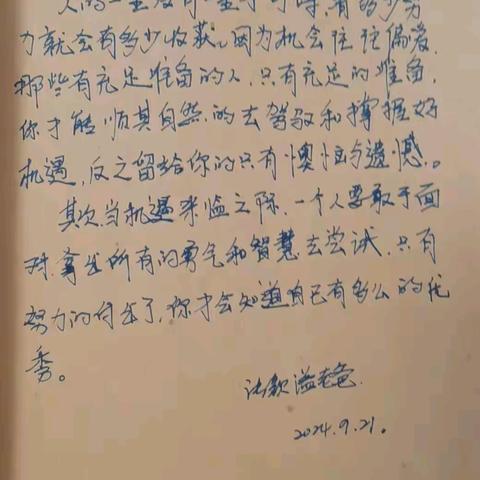 力就会有多少收获。因为机会往往偏爱
那些有充足准备的人，只有充足的准备，
你才能顺其自然的去驾驭和掌握好
机遇，反之留给你的只有懊恼与遗憾。
其次当机遇来临之际，一个人要敢于面
对，拿出所有的勇气和智慧去尝试，只有
努力的付出了，你才会知道自己有多么的优
秀。
2024.9.21。